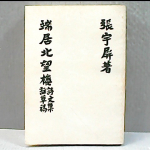 張宇屏著
端居北望樓詩文集
詞草稿